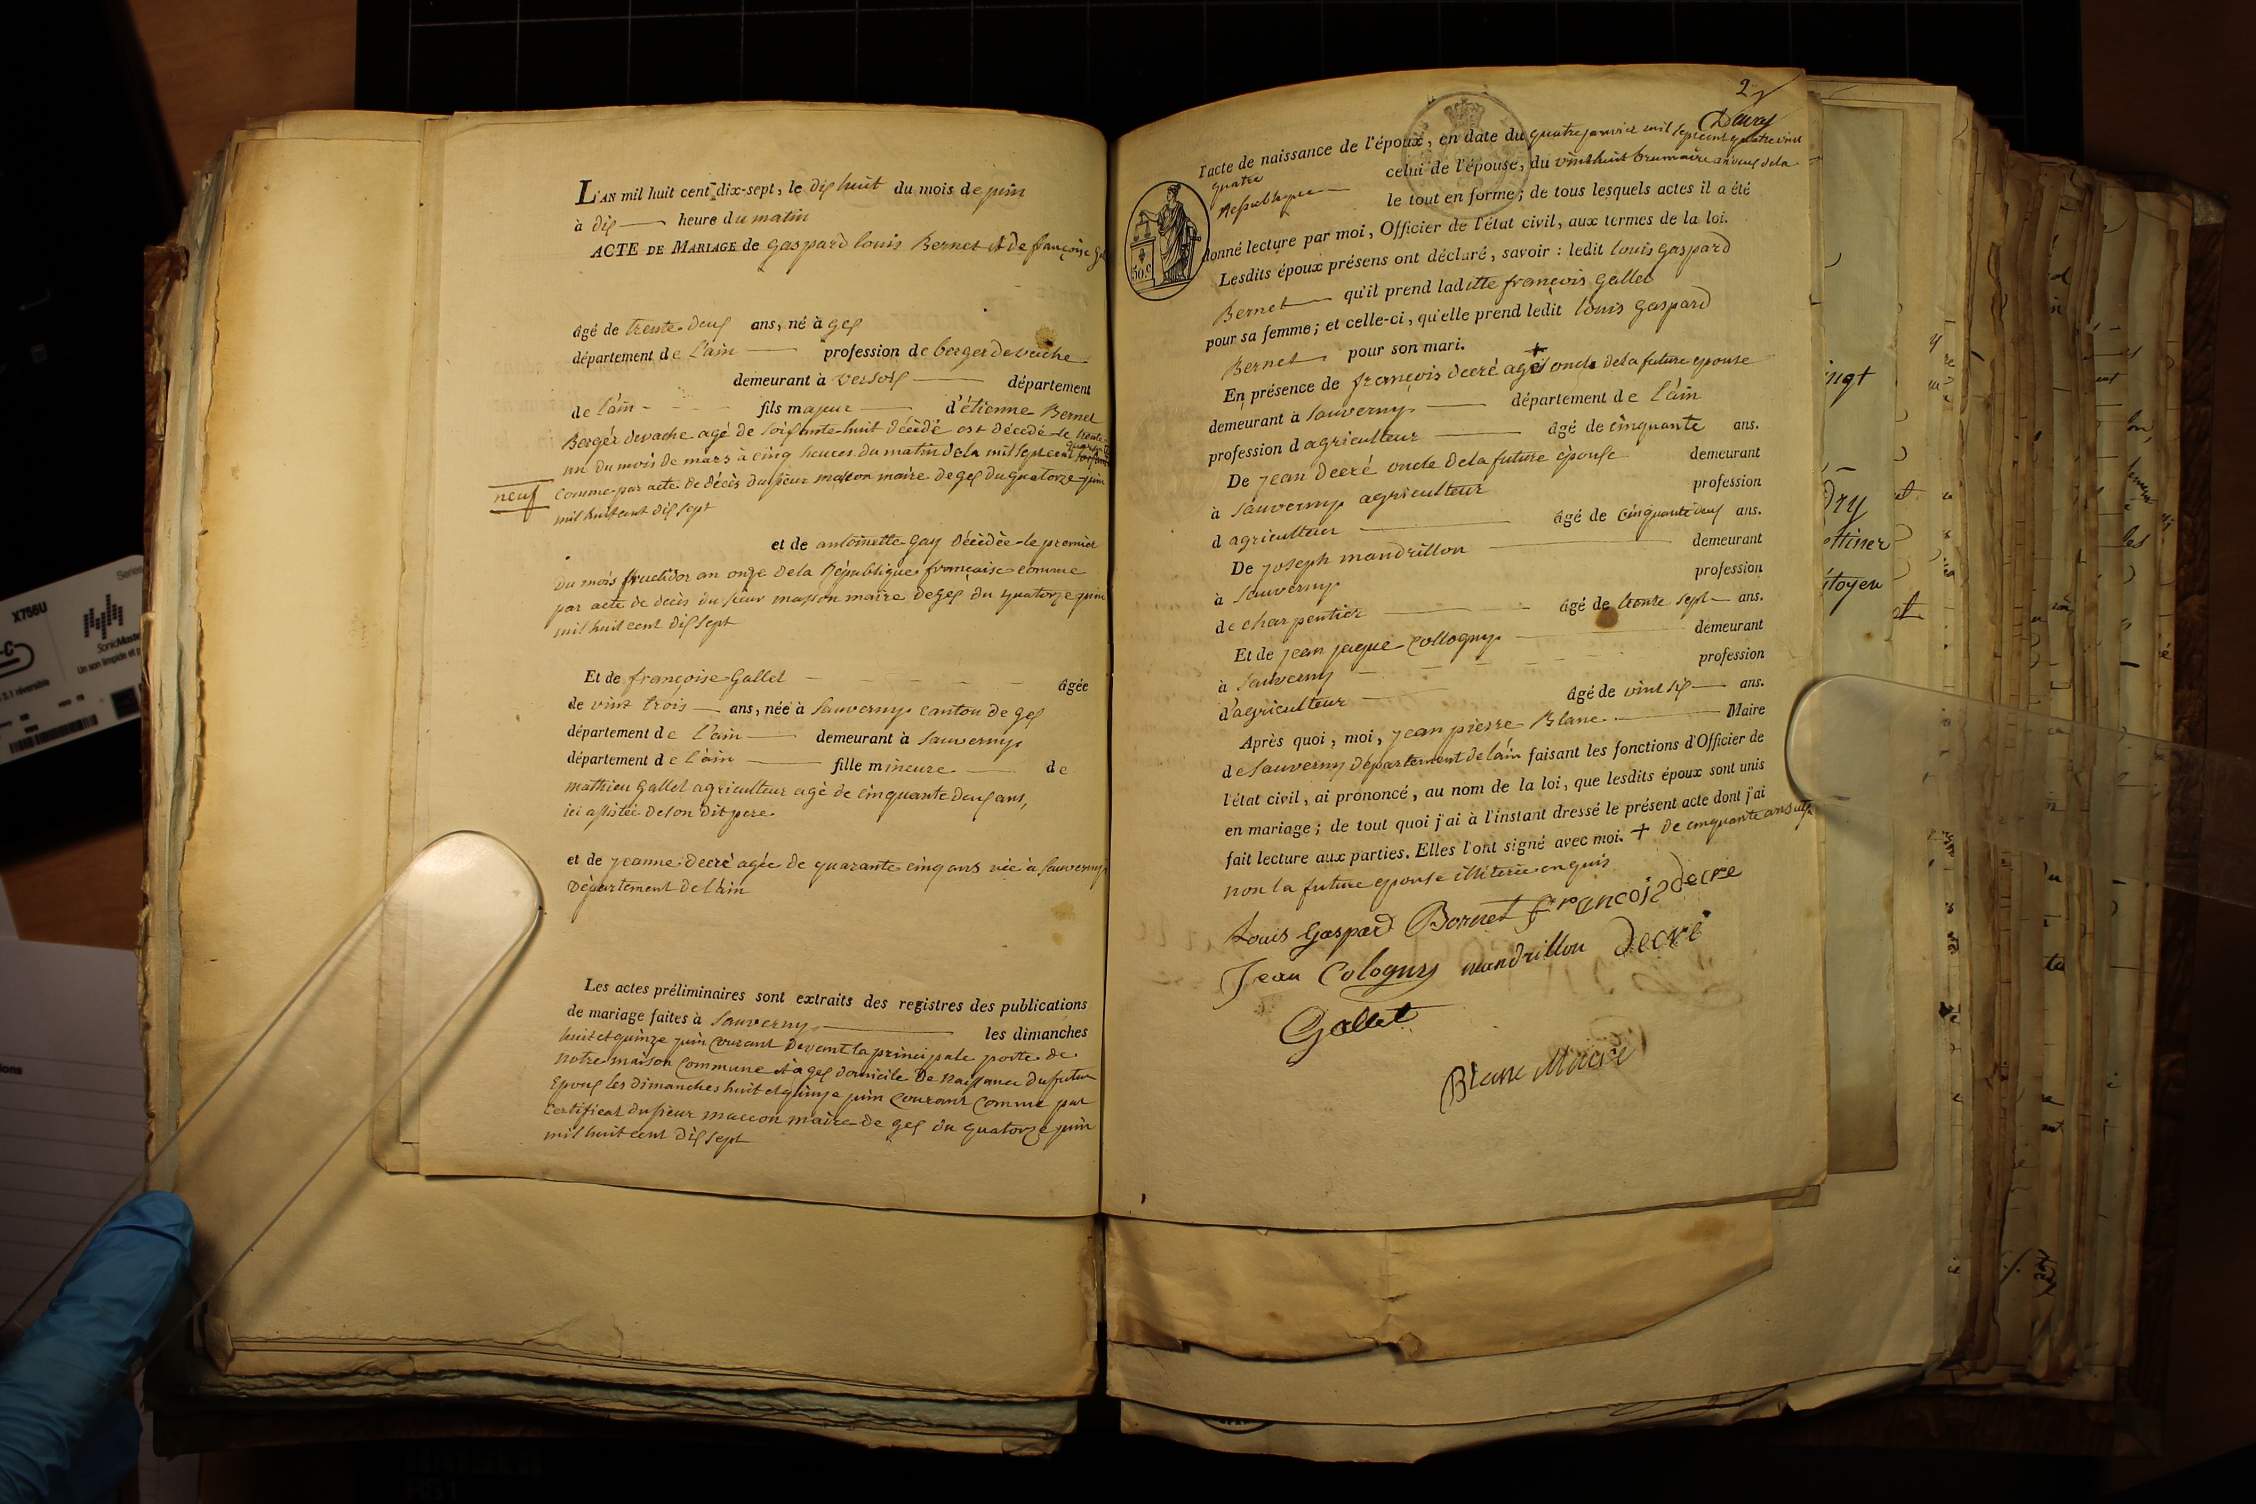 L'AN mil huit cent dix-sept, le dix huit du mois de juin
à dix heure du matin
ACTE DE MARIAGE de gaspard louis Bernet et de françoise
âgé de trente deux ans, né à gex
département de l'ain profession de berger de vache
demeurant à versoix département
de l'ain fils majeur d'étienne Bernet
Berger de vache agé de soixante huit décédé est décédé le trente
un du mois de mars à cinq heures du matin de la mil sept cent
neuf
comme par acte de décès du sieur masson maire de gex du quatorze juin
mil huit cent dix sept
et de antoinette gay décédée le premier
du mois fructidor an onze de la République française comme
par acte de decès du sieur masson maire de gex du quatorze juin
mil huit cent dix sept
Et de françoise gallet âgée
de vint trois ans, née à Sauverny canton de gex
département de l'ain demeurant à sauverny
département de l'ain fille mineure de
mathieu gallet agriculteur agé de cinquante deux ans,
ici assistée de son dit pere
et de jeanne decré agée de quarante cinq ans née à Sauverny
département de l'ain
Les actes préliminaires sont extraits des registres des publications
de mariage faites à Sauverny les dimanches
huit et quinze juin courant devant la principale porte de
notre maison commune et à gex domicile de naissance du futur
Epoux les dimanches huit et quinze juin courant comme par
certificat du sieur maccon maire de gex du quatorze juin
mil huit cent dix sept
2
l'acte de naissance de l'époux, en date du quatre janvier mil sept cent quatre vint
quatre celui de l'épouse, du vint huit brumaire an deux de la
Republique le tout en forme; de tous lesquels actes il a été
donné lecture par moi, Officier de l'état civil, aux termes de la loi.
50 c
Lesdits époux présens ont déclaré, savoir : ledit louis gaspard
Bernet qu'il prend ladite françois gallet
pour sa femme; et celle-ci, qu'elle prend ledit louis gaspard
Bernet pour son mari.
En présence de françois decré agé + oncle de la future epouse
demeurant à Sauverny département de l'ain
profession d agriculteur âgé de cinquante ans.
De jean decré oncle de la future épouse demeurant
à Sauverny agriculteur profession
d agriculteur âgé de cinquante deux ans.
De joseph mandrillon demeurant
à Sauverny profession
de charpentier âgé de trente sept ans.
Et de jean jaque Collogny demeurant
à Sauverny profession
d'agriculteur âgé de vint six ans.
Après quoi, moi, jean pierre Blanc Maire
de Sauverny département de l'ain faisant les fonctions d'Officier de
l'état civil, ai prononcé, au nom de la loi, que lesdits époux sont unis
en mariage; de tout quoi j'ai à l'instant dressé le présent acte dont j'ai
fait lecture aux parties. Elles l'ont signé avec moi. + de cinquante ans
non la future epouse illiterée enquis
Louis Gaspard Bornet francois decré
Jean Cologny mandrillon decré
Gallet
Blanc Maire